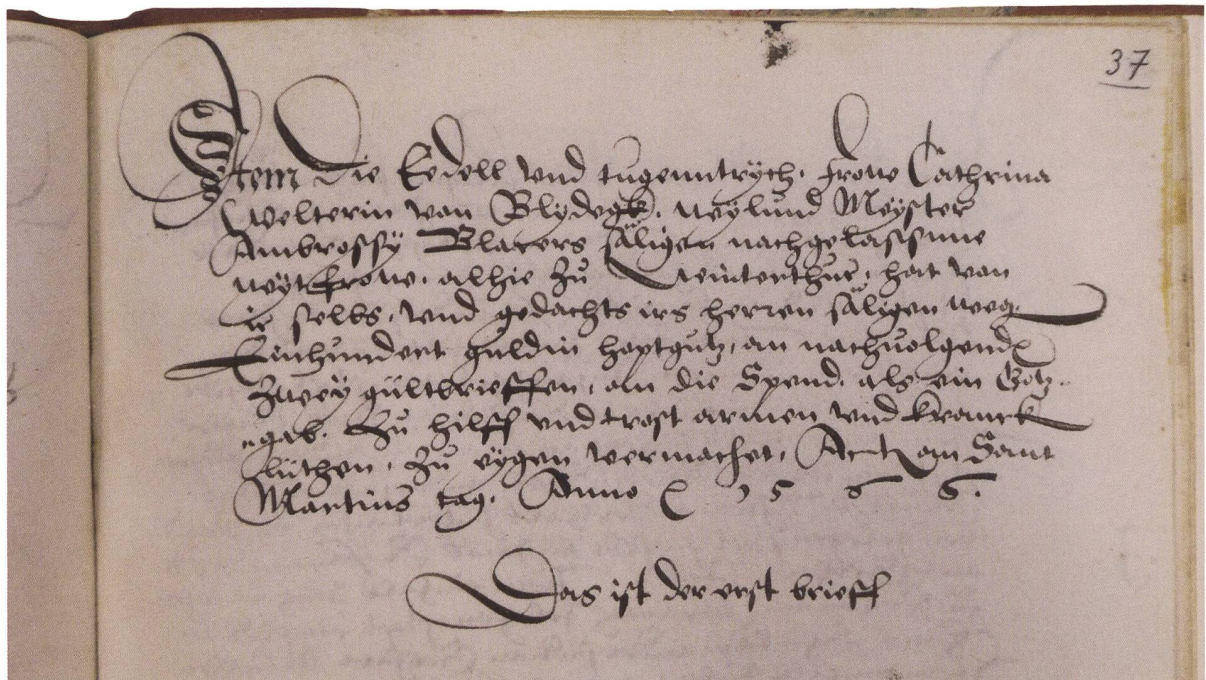 37
Item die Eedell vnd tugenntrych, frow Cathrina
Welterin von Blydegk, weylund Meyster
Ambrossÿ Blarers säligen nachgelassnne
weytfrow, alhie zů Winterthur, hat von
ir selbs, vnd gedachts irs herren säligen weg
Einhundert guldin hoptgutz, an nachuolgendē
zweÿ gültbrieffen, an die Spend, als ein Gotz-
gab. Zů hilff vnd trost armen vnd kranck
lüthen, zů eÿgen vermachet, Act an Sant
Martins tag. Anno 1566.
Das ist der erst brieff